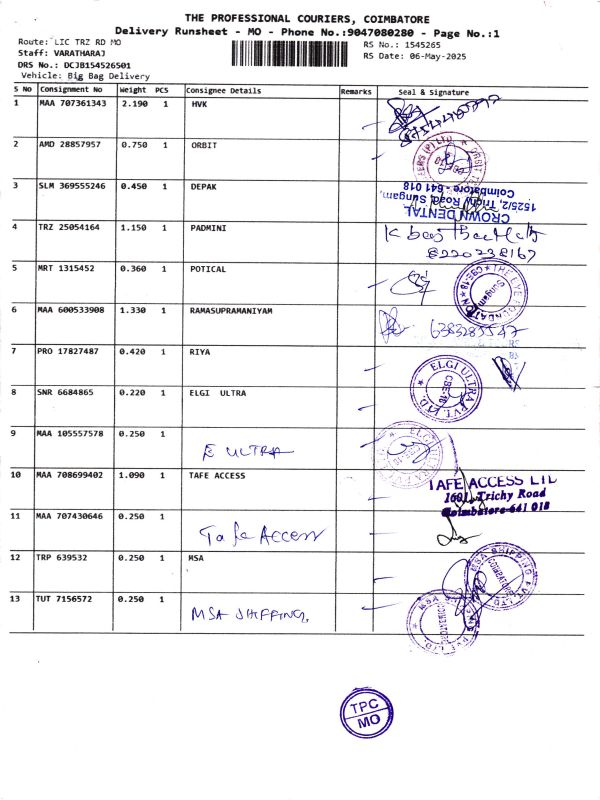 THE PROFESSIONAL COURIERS, COIMBATORE
Delivery Runsheet - MO - Phone No.:9047080280 - Page No.:1
Route: LIC TRZ RD MO
RS No.: 1545265
Staff: VARATHARAJ
RS Date: 06-May-2025
DRS No.: DCJB154526501
Vehicle: Big Bag Delivery
S No Consignment No Weight PCS Consignee Details Remarks Seal & Signature
1 MAA 707361343 2.190 1 HVK
2 AMD 28857957 0.750 1 ORBIT
3 SLM 369555246 0.450 1 DEPAK
CROWN DENTAL
1525/2, Trichy Road, Sungam,
Coimbatore - 641 018
4 TRZ 25054164 1.150 1 PADMINI
8220238167
5 MRT 1315452 0.360 1 POTICAL
THE EYE FOUNDATION
CBE-18
Sungam
6 MAA 600533908 1.330 1 RAMASUPRAMANIYAM
6383283547
7 PRO 17827487 0.420 1 RIYA
ELGI ULTRA PVT. LTD.
CBE-18
8 SNR 6684865 0.220 1 ELGI ULTRA
9 MAA 105557578 0.250 1
E ULTRA
10 MAA 708699402 1.090 1 TAFE ACCESS
TAFE ACCESS LTD
1601, Trichy Road
Coimbatore-641 018
11 MAA 707430646 0.250 1
Tafe Access
12 TRP 639532 0.250 1 MSA
MSA SHIPPING PVT. LTD.
COIMBATORE
13 TUT 7156572 0.250 1
MSA SHIPPING.
TPC
MO